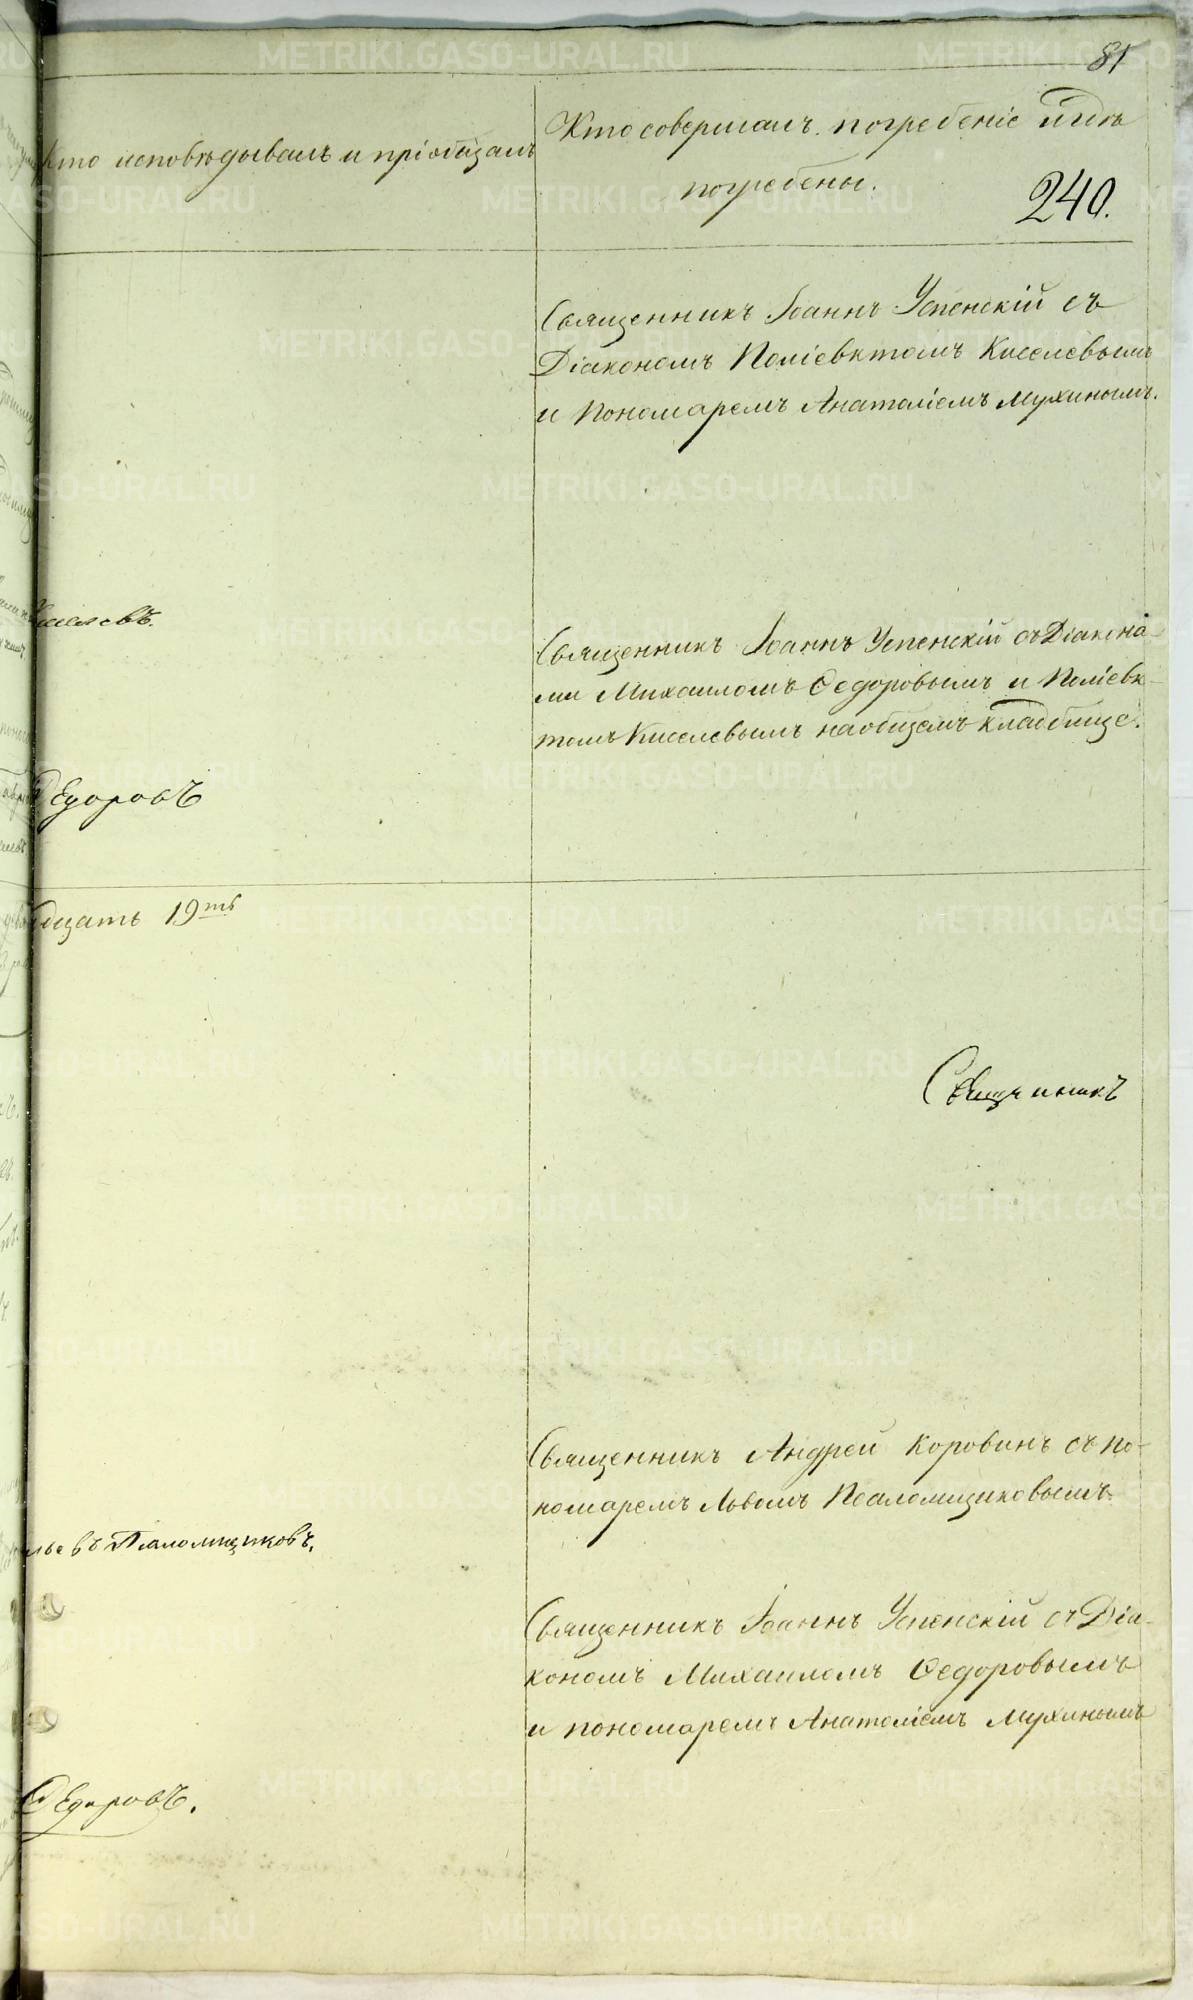 81
Кто исповѣдывалъ и пріобщалъ
Кто совершалъ погребеніе и гдѣ
погребены.
240.
Священникъ Іоаннъ Успенскій съ
Діакономъ Поліевктомъ Киселевымъ
и Пономаремъ Анатоліемъ Мухинымъ.
Священникъ Іоаннъ Успенскій съ Діакона-
ми Михаиломъ Ѳедоровымъ и Поліевк-
томъ Киселевымъ на общемъ кладбище.
Ѳедоровъ
дцать 19ть
Священникъ
Священникъ Андрей Коровинъ съ по-
номаремъ Львомъ Псаломщиковымъ.
Псаломщиковъ.
Священникъ Іоаннъ Успенскій съ Діа-
кономъ Михаиломъ Ѳедоровымъ
и пономаремъ Анатоліемъ Мухинымъ
Ѳедоровъ.
METRIKI.GASO-URAL.RU